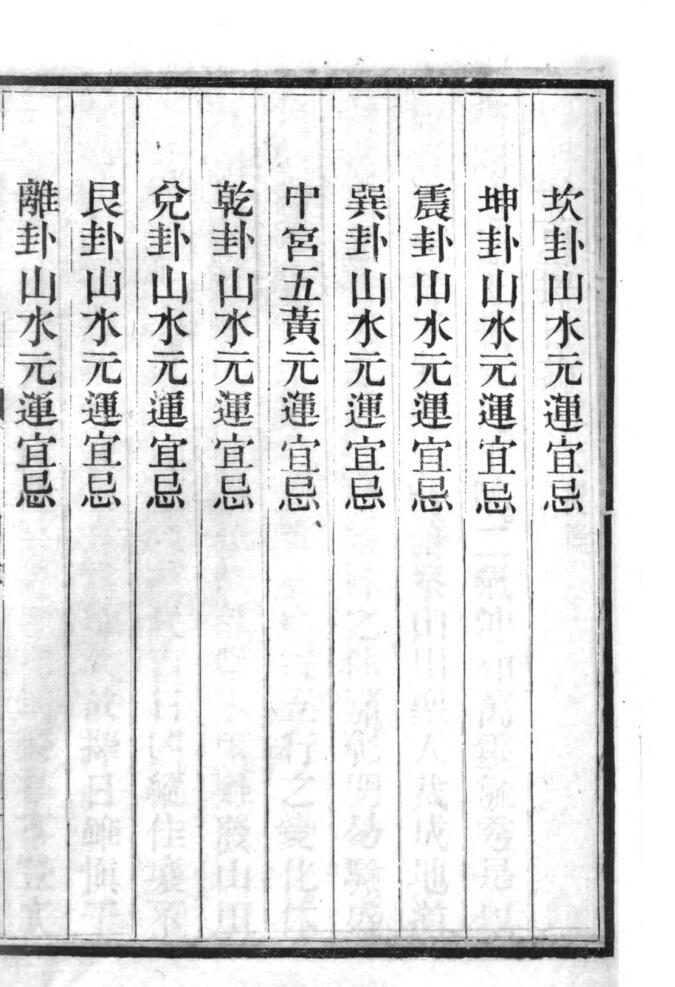 坎卦山水元運宜忌
坤卦山水元運宜忌
震卦山水元運宜忌
巽卦山水元運宜忌
中宮五黃元運宜忌
乾卦山水元運宜忌
兌卦山水元運宜忌
艮卦山水元運宜忌
離卦山水元運宜忌